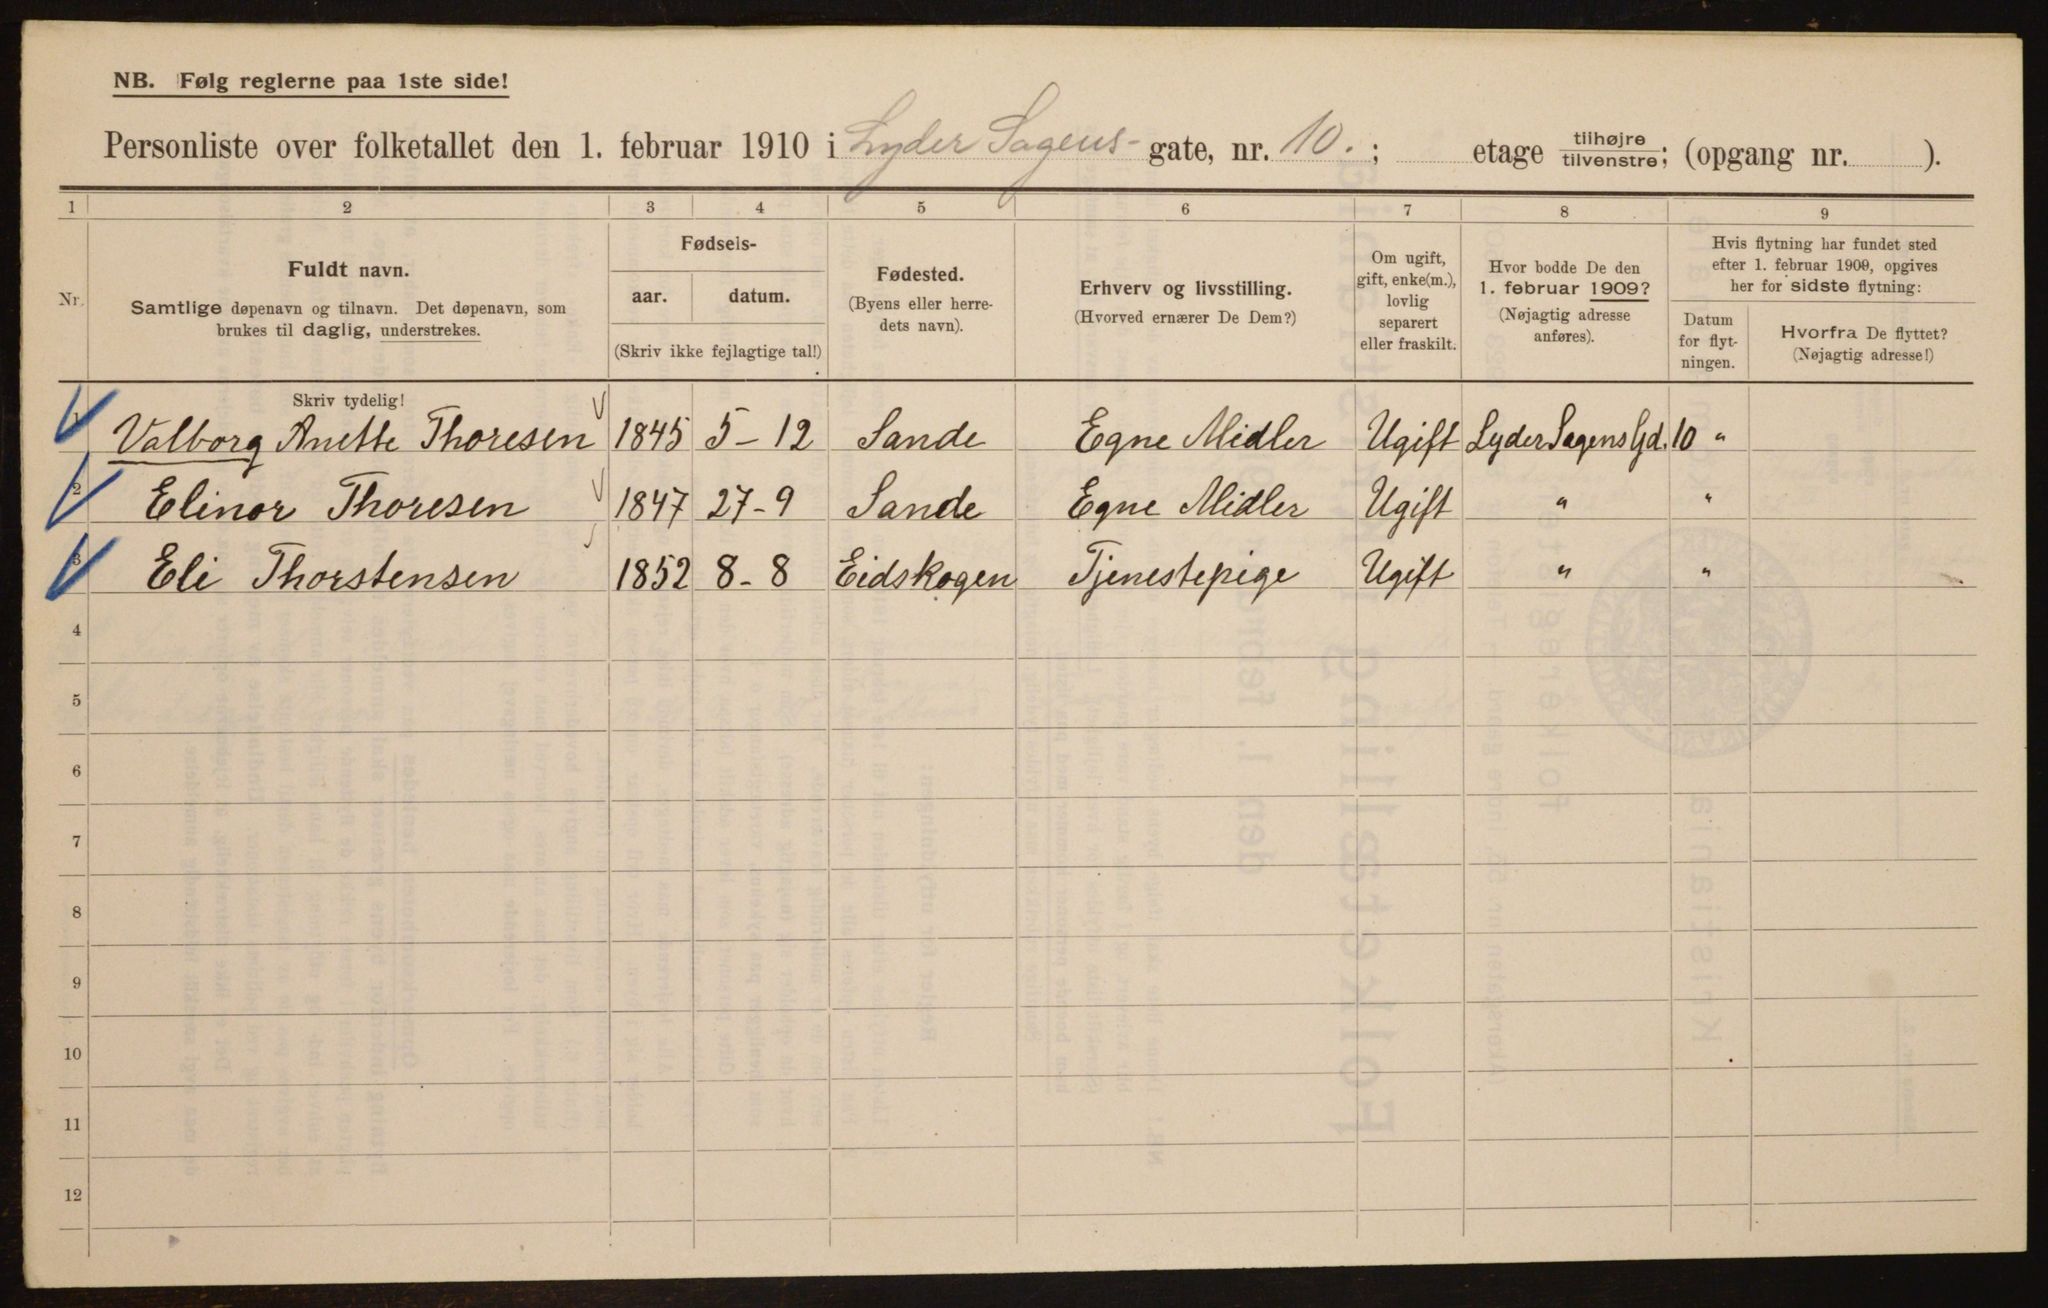 NB. Følg reglerne paa 1ste side!
Personliste over folketallet den 1. februar 1910 i Lyder Sagens- gate, nr. 10. ; etage tilhøjre tilvenstre; (opgang nr. ).
1 2 3 4 5 6 7 8 9
Nr.
Fuldt navn.
Samtlige døpenavn og tilnavn. Det døpenavn, som
brukes til daglig, understrekes.
Fødsels-
aar. datum.
(Skriv ikke fejlagtige tal!)
Fødested.
(Byens eller herre-
dets navn).
Erhverv og livsstilling.
(Hvorved ernærer De Dem?)
Om ugift,
gift, enke(m.),
lovlig
separert
eller fraskilt.
Hvor bodde De den
1. februar 1909?
(Nøjagtig adresse
anføres).
Hvis flytning har fundet sted
efter 1. februar 1909, opgives
her for sidste flytning:
Datum
for flyt-
ningen.
Hvorfra De flyttet?
(Nøjagtig adresse!)
Skriv tydelig!
1 Valborg Anette Thoresen 1845 5-12 Sande Egne Midler Ugift Lyder Sagens Gd. 10 "
2 Elinor Thoresen 1847 27-9 Sande Egne Midler Ugift " "
3 Eli Thorstensen 1852 8-8 Eidskogen Tjenestepige Ugift " "
4
5
6
7
8
9
10
11
12